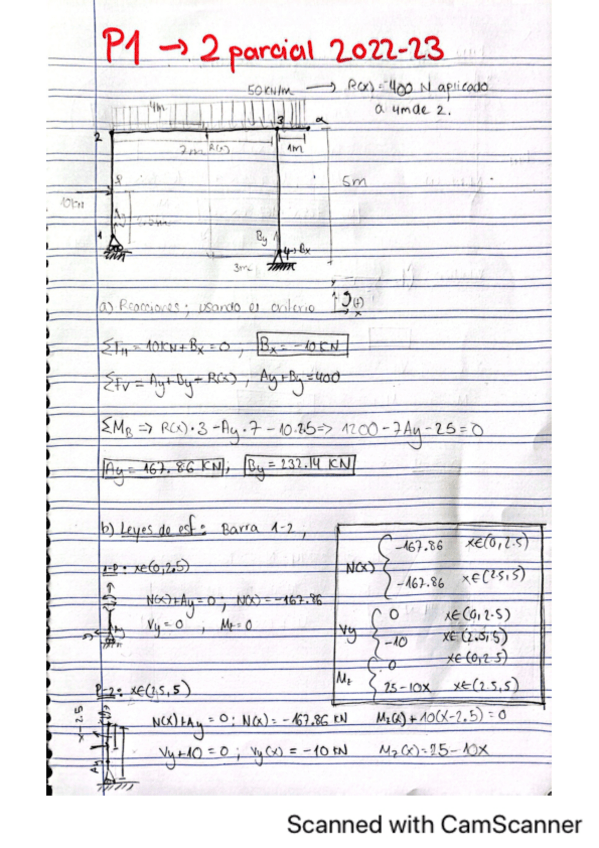 P1 → 2 parcial 2022-23
50 kN/m → R(x) = 400 N aplicado
a 4m de 2.
4m
2
3
7m R(x)
1m
5m
P
10kN
1
By
4 Bx
3m
a) Reacciones; usando el criterio
ΣFH = 10KN + Bx = 0 ; Bx = -10 KN
ΣFV = Ay + By - R(x) ; Ay + By = 400
ΣMB => R(x)·3 - Ay·7 - 10·2.5 => 1200 - 7Ay - 25 = 0
Ay = 167.86 KN ; By = 232.14 KN
b) Leyes de esf: Barra 1-2,
1-P: x∈(0,2.5)
N(x)+Ay = 0 ; N(x) = -167.86
Vy = 0 , Mz = 0
N(x) { -167.86 x∈(0,2.5)
-167.86 x∈(2.5,5)
Vy { 0 x∈(0,2.5)
-10 x∈(2.5,5)
Mz { 0 x∈(0,2.5)
25-10x x∈(2.5,5)
P-2: x∈(2.5,5)
x-2.5
N(x)+Ay = 0 ; N(x) = -167.86 KN Mz(x) + 10(x-2.5) = 0
Vy+10 = 0 ; Vy(x) = -10 KN Mz(x) = 25-10x
Ay
Scanned with CamScanner